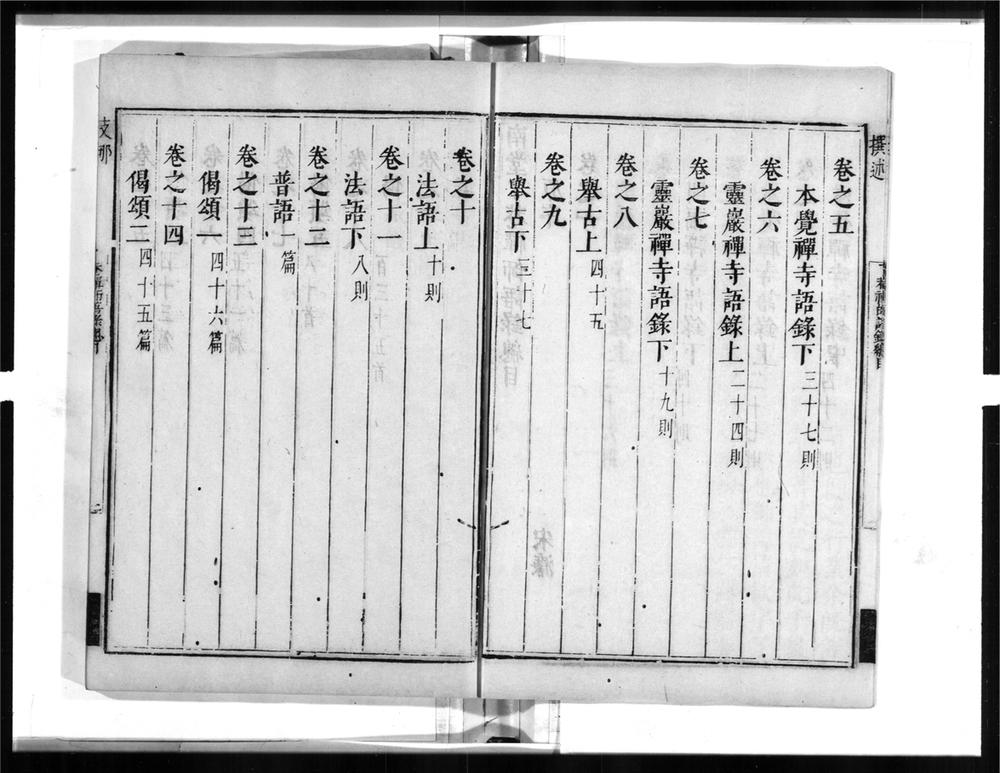 撰述
卷之五
本覺禪寺語錄下三十七則
卷之六
靈巖禪寺語錄上二十四則
卷之七
靈巖禪寺語錄下十九則
卷之八
舉古上四十五
卷之九
舉古下三十七
卷之十
法語上十則
卷之十一
法語下八則
卷之十二
普語一篇
卷之十三
偈頌一四十六篇
卷之十四
偈頌二四十五篇
支那